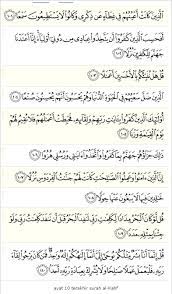 ٱلَّذِينَ كَانَتْ أَعْيُنُهُمْ فِى غِطَآءٍ عَن ذِكْرِى وَكَانُوا۟ لَا يَسْتَطِيعُونَ سَمْعًا ١٠١
أَفَحَسِبَ ٱلَّذِينَ كَفَرُوٓا۟ أَن يَتَّخِذُوا۟ عِبَادِى مِن دُونِىٓ أَوْلِيَآءَ إِنَّآ أَعْتَدْنَا
جَهَنَّمَ لِلْكَٰفِرِينَ نُزُلًا ١٠٢
قُلْ هَلْ نُنَبِّئُكُم بِٱلْأَخْسَرِينَ أَعْمَٰلًا ١٠٣
ٱلَّذِينَ ضَلَّ سَعْيُهُمْ فِى ٱلْحَيَوٰةِ ٱلدُّنْيَا وَهُمْ يَحْسَبُونَ أَنَّهُمْ يُحْسِنُونَ صُنْعًا ١٠٤
أُو۟لَٰٓئِكَ ٱلَّذِينَ كَفَرُوا۟ بِـَٔايَٰتِ رَبِّهِمْ وَلِقَآئِهِۦ فَحَبِطَتْ أَعْمَٰلُهُمْ فَلَا نُقِيمُ لَهُمْ
يَوْمَ ٱلْقِيَٰمَةِ وَزْنًا ١٠٥
ذَٰلِكَ جَزَآؤُهُمْ جَهَنَّمُ بِمَا كَفَرُوا۟ وَٱتَّخَذُوٓا۟ ءَايَٰتِى وَرُسُلِى هُزُوًا ١٠٦
إِنَّ ٱلَّذِينَ ءَامَنُوا۟ وَعَمِلُوا۟ ٱلصَّٰلِحَٰتِ كَانَتْ لَهُمْ جَنَّٰتُ ٱلْفِرْدَوْسِ نُزُلًا ١٠٧
خَٰلِدِينَ فِيهَا لَا يَبْغُونَ عَنْهَا حِوَلًا ١٠٨
قُل لَّوْ كَانَ ٱلْبَحْرُ مِدَادًا لِّكَلِمَٰتِ رَبِّى لَنَفِدَ ٱلْبَحْرُ قَبْلَ أَن تَنفَدَ كَلِمَٰتُ رَبِّى وَلَوْ
جِئْنَا بِمِثْلِهِۦ مَدَدًا ١٠٩
قُلْ إِنَّمَآ أَنَا۠ بَشَرٌ مِّثْلُكُمْ يُوحَىٰٓ إِلَىَّ أَنَّمَآ إِلَٰهُكُمْ إِلَٰهٌ وَٰحِدٌ فَمَن كَانَ يَرْجُوا۟ لِقَآءَ
رَبِّهِۦ فَلْيَعْمَلْ عَمَلًا صَٰلِحًا وَلَا يُشْرِكْ بِعِبَادَةِ رَبِّهِۦٓ أَحَدًۢا ١١٠
ayat 10 terakhir surah al-Kahf